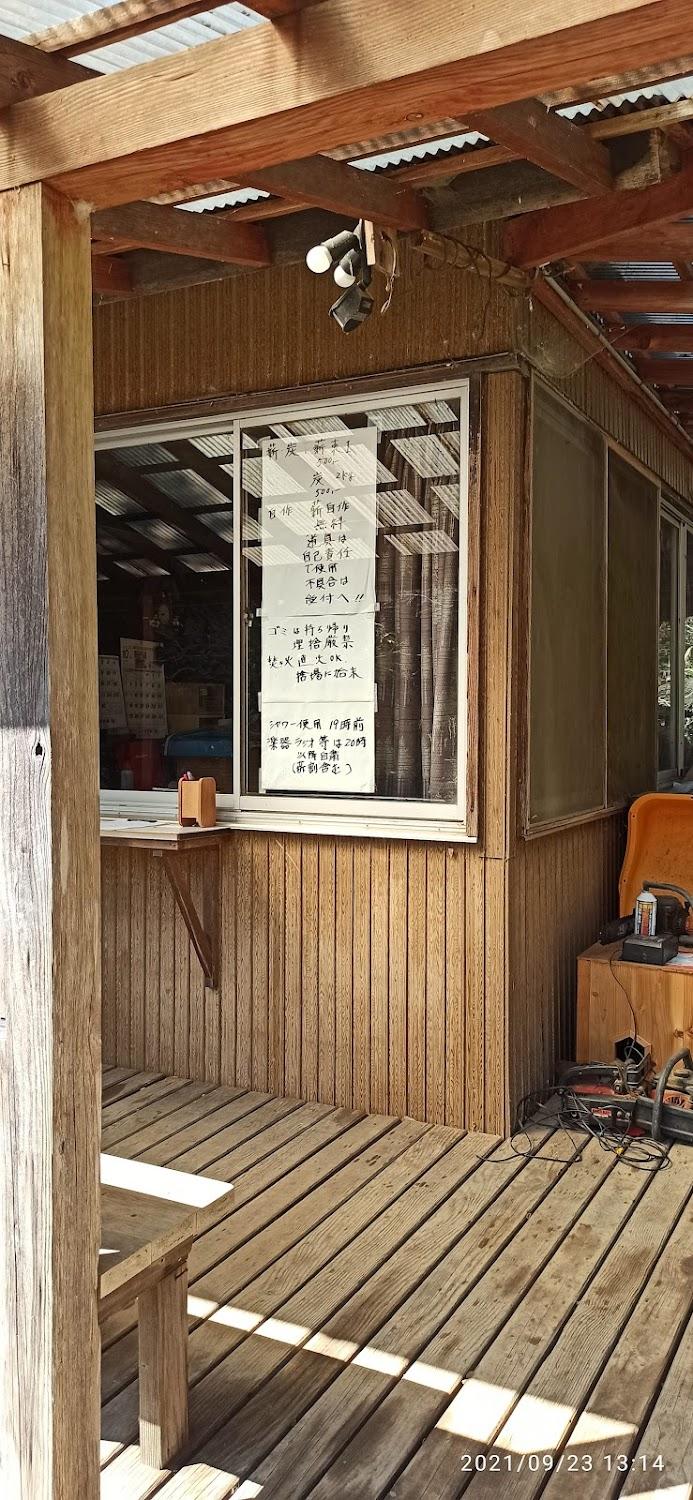 薪・炭 薪 束 1
500,-
炭 2kg
500,-
自作 薪自作
無料
道具は
自己責任
で使用
不具合は
受付へ!!
ゴミは持ち帰り
埋捨厳禁
焚き火直火OK
捨場に始末
シャワー使用 19時前
楽器 ラジオ等は20時
以降自粛
(薪割含む)
2021/09/23 13:14